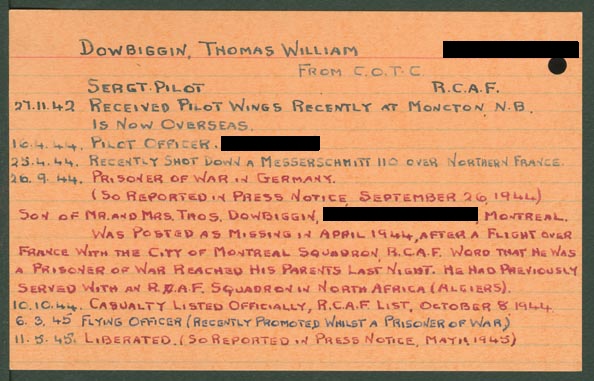 DOWBIGGIN, THOMAS WILLIAM
FROM C.O.T.C.
SERGT. PILOT R.C.A.F.
27.11.42 RECEIVED PILOT WINGS RECENTLY AT MONCTON, N.B.
IS NOW OVERSEAS.
16.4.44. PILOT OFFICER.
25.4.44. RECENTLY SHOT DOWN A MESSERSCHMITT 110 OVER NORTHERN FRANCE.
26.9.44. PRISONER OF WAR IN GERMANY.
(SO REPORTED IN PRESS NOTICE, SEPTEMBER 26, 1944)
SON OF MR. AND MRS. THOS. DOWBIGGIN, MONTREAL.
WAS POSTED AS MISSING IN APRIL 1944, AFTER A FLIGHT OVER
FRANCE WITH THE CITY OF MONTREAL SQUADRON, R.C.A.F. WORD THAT HE WAS
A PRISONER OF WAR REACHED HIS PARENTS LAST NIGHT. HE HAD PREVIOUSLY
SERVED WITH AN R.A.F. SQUADRON IN NORTH AFRICA (ALGIERS).
10.10.44. CASUALTY LISTED OFFICIALLY, R.C.A.F. LIST, OCTOBER 8 1944.
6.3.45 FLYING OFFICER (RECENTLY PROMOTED WHILST A PRISONER OF WAR)
11.5.45. LIBERATED. (SO REPORTED IN PRESS NOTICE, MAY 11, 1945)